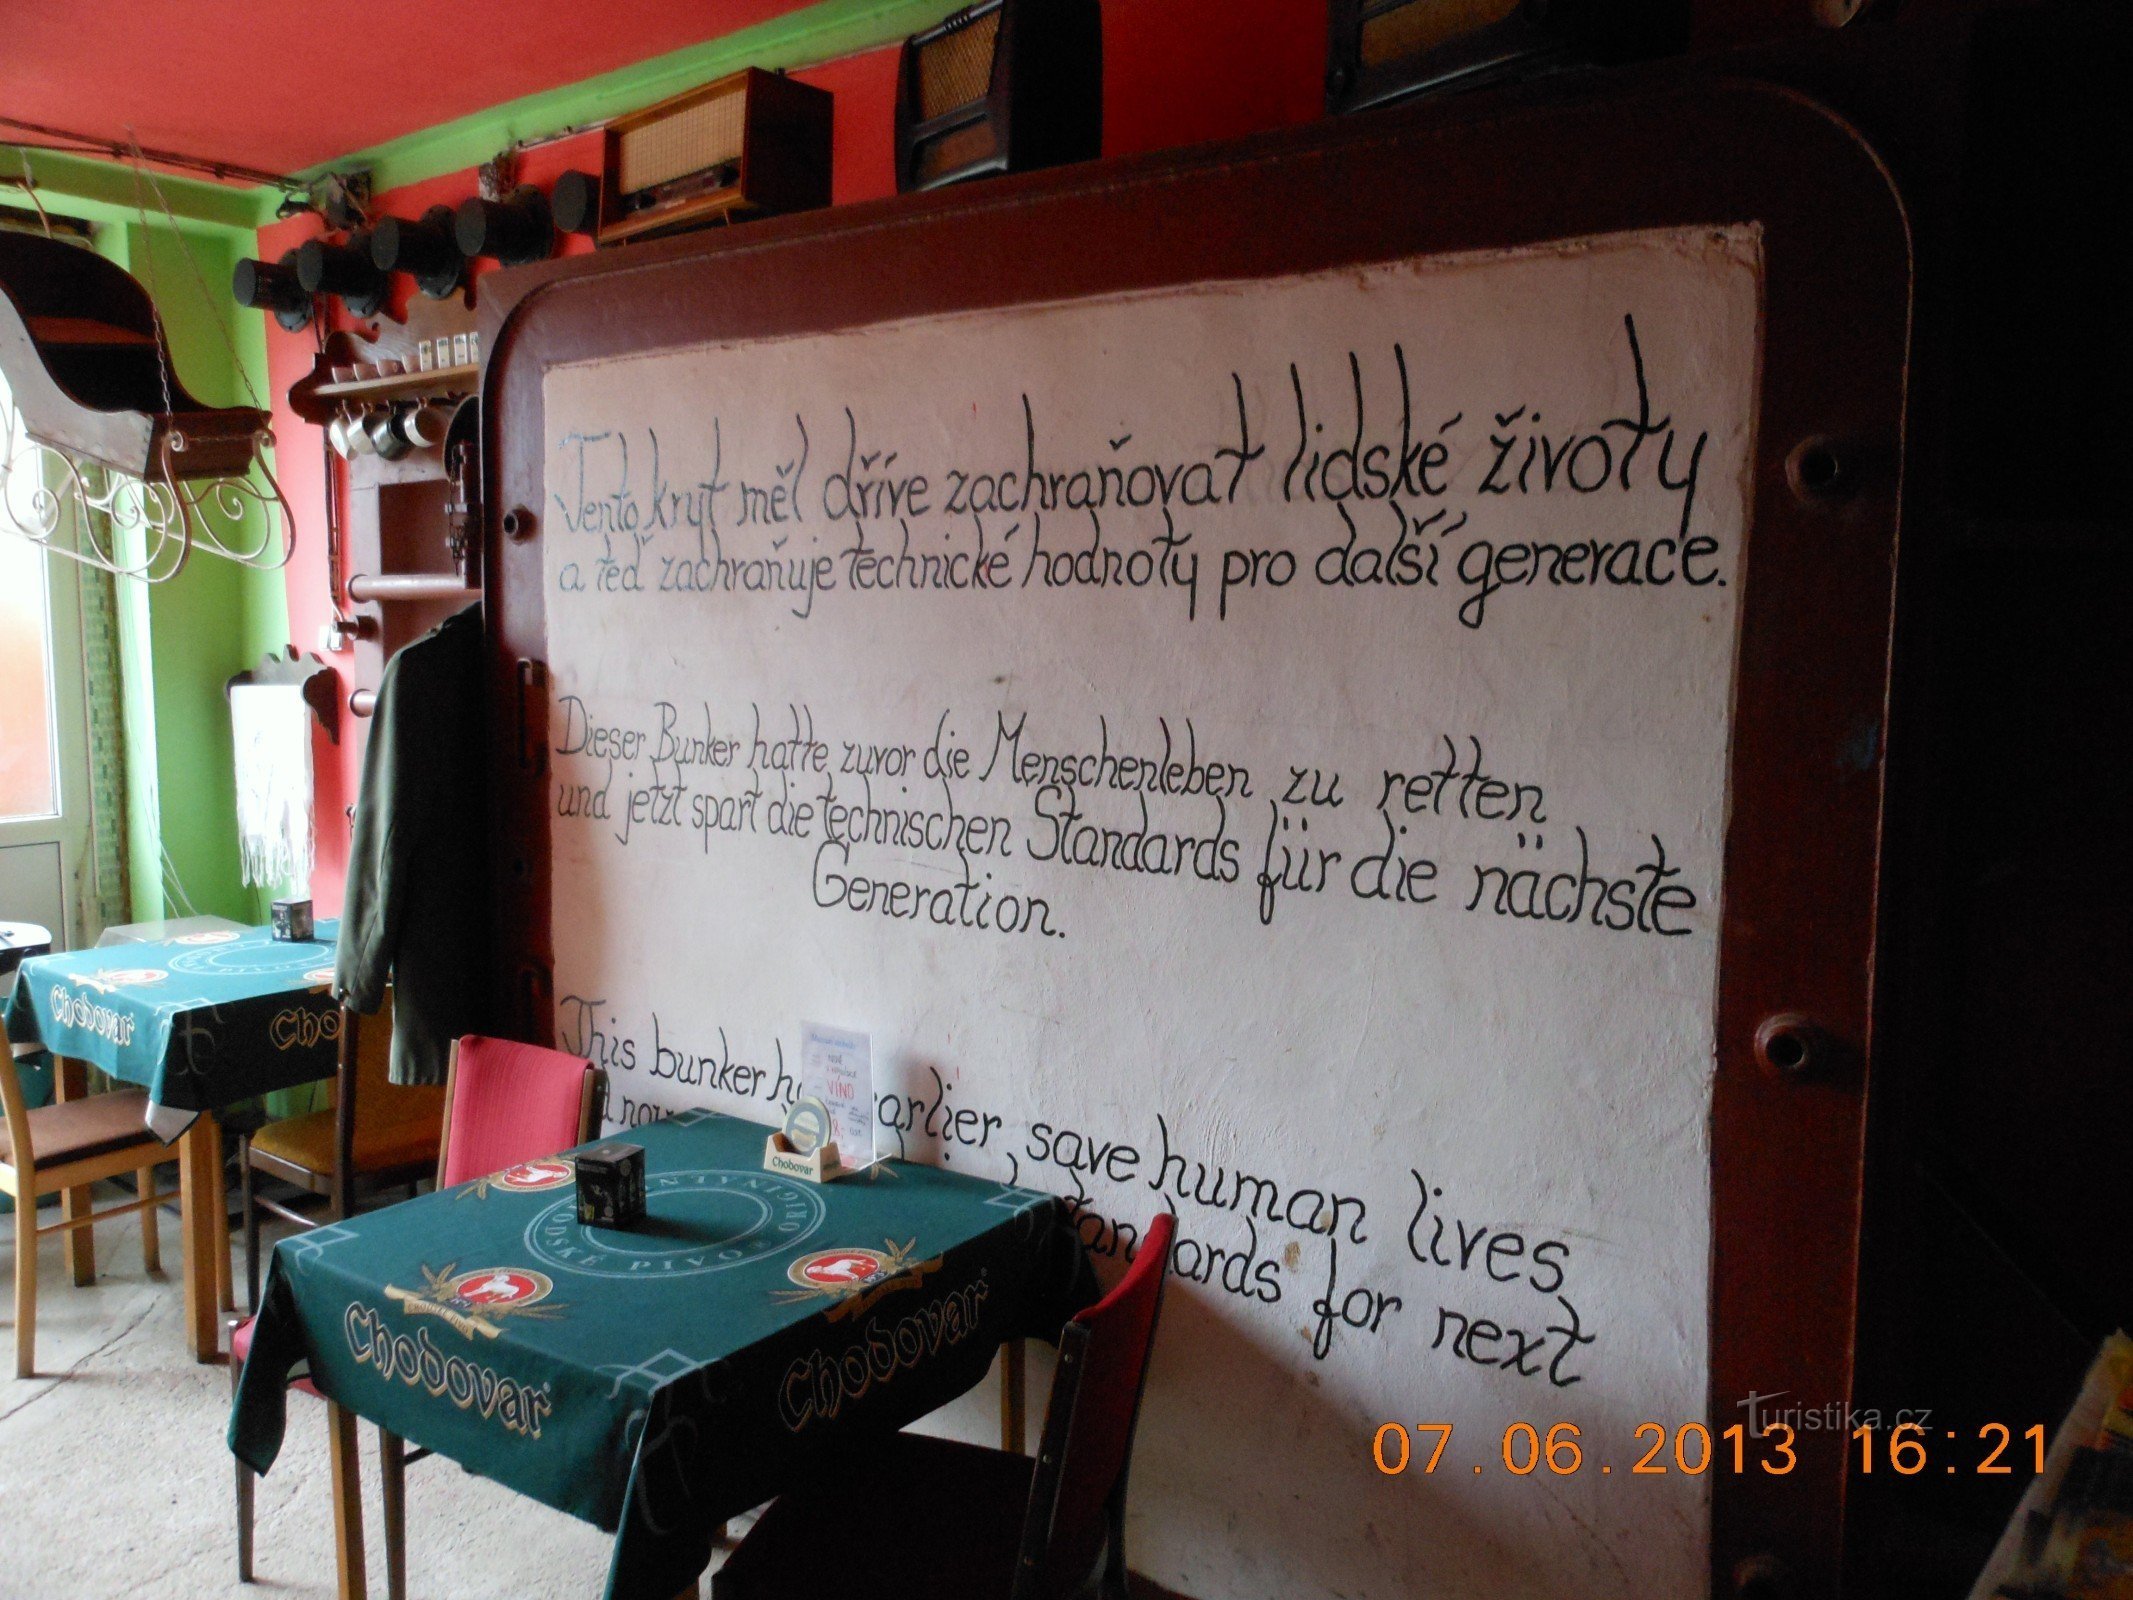 Tento kryt měl dříve zachraňovat lidské životy
a teď zachraňuje technické hodnoty pro další generace.
Dieser Bunker hatte zuvor die Menschenleben zu retten
und jetzt spart die technischen Standards für die nächste
Generation.
This bunker earlier save human lives
standards for next
VÍNO
Chodovar
Chodovar
Chodovar
Chodovar
ORIGINAL
PIVO
Turistika.cz
07.06.2013 16:21